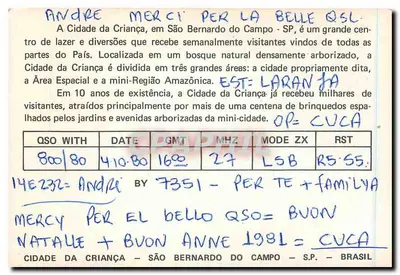 ANDRE MERCI PER LA BELLE QSL.
A Cidade da Criança, em São Bernardo do Campo - SP, é um grande cen-
tro de lazer e diversões que recebe semanalmente visitantes vindos de todas as
partes do País. Localizada em um bosque natural densamente arborizado, a
Cidade da Criança é dividida em três grandes áreas: a cidade propriamente dita,
a Área Espacial e a mini-Região Amazônica. EST= LARANJA
Em 10 anos de existência, a Cidade da Criança já recebeu milhares de
visitantes, atraídos principalmente por mais de uma centena de brinquedos espa-
lhados pelos jardins e avenidas arborizadas da mini-cidade. OP= CUCA
QSO WITH DATE GMT MHZ MODE ZX RST
800/80 4.10.80 1600 27 LSB R5-55.
14E232= André BY 7351 - PER TE + FAMILYA
MERCY PER EL BELLO QSO= BUON
NATALLE + BUON ANNE 1981 = CUCA
CIDADE DA CRIANÇA - SÃO BERNARDO DO CAMPO - S.P. - BRASIL